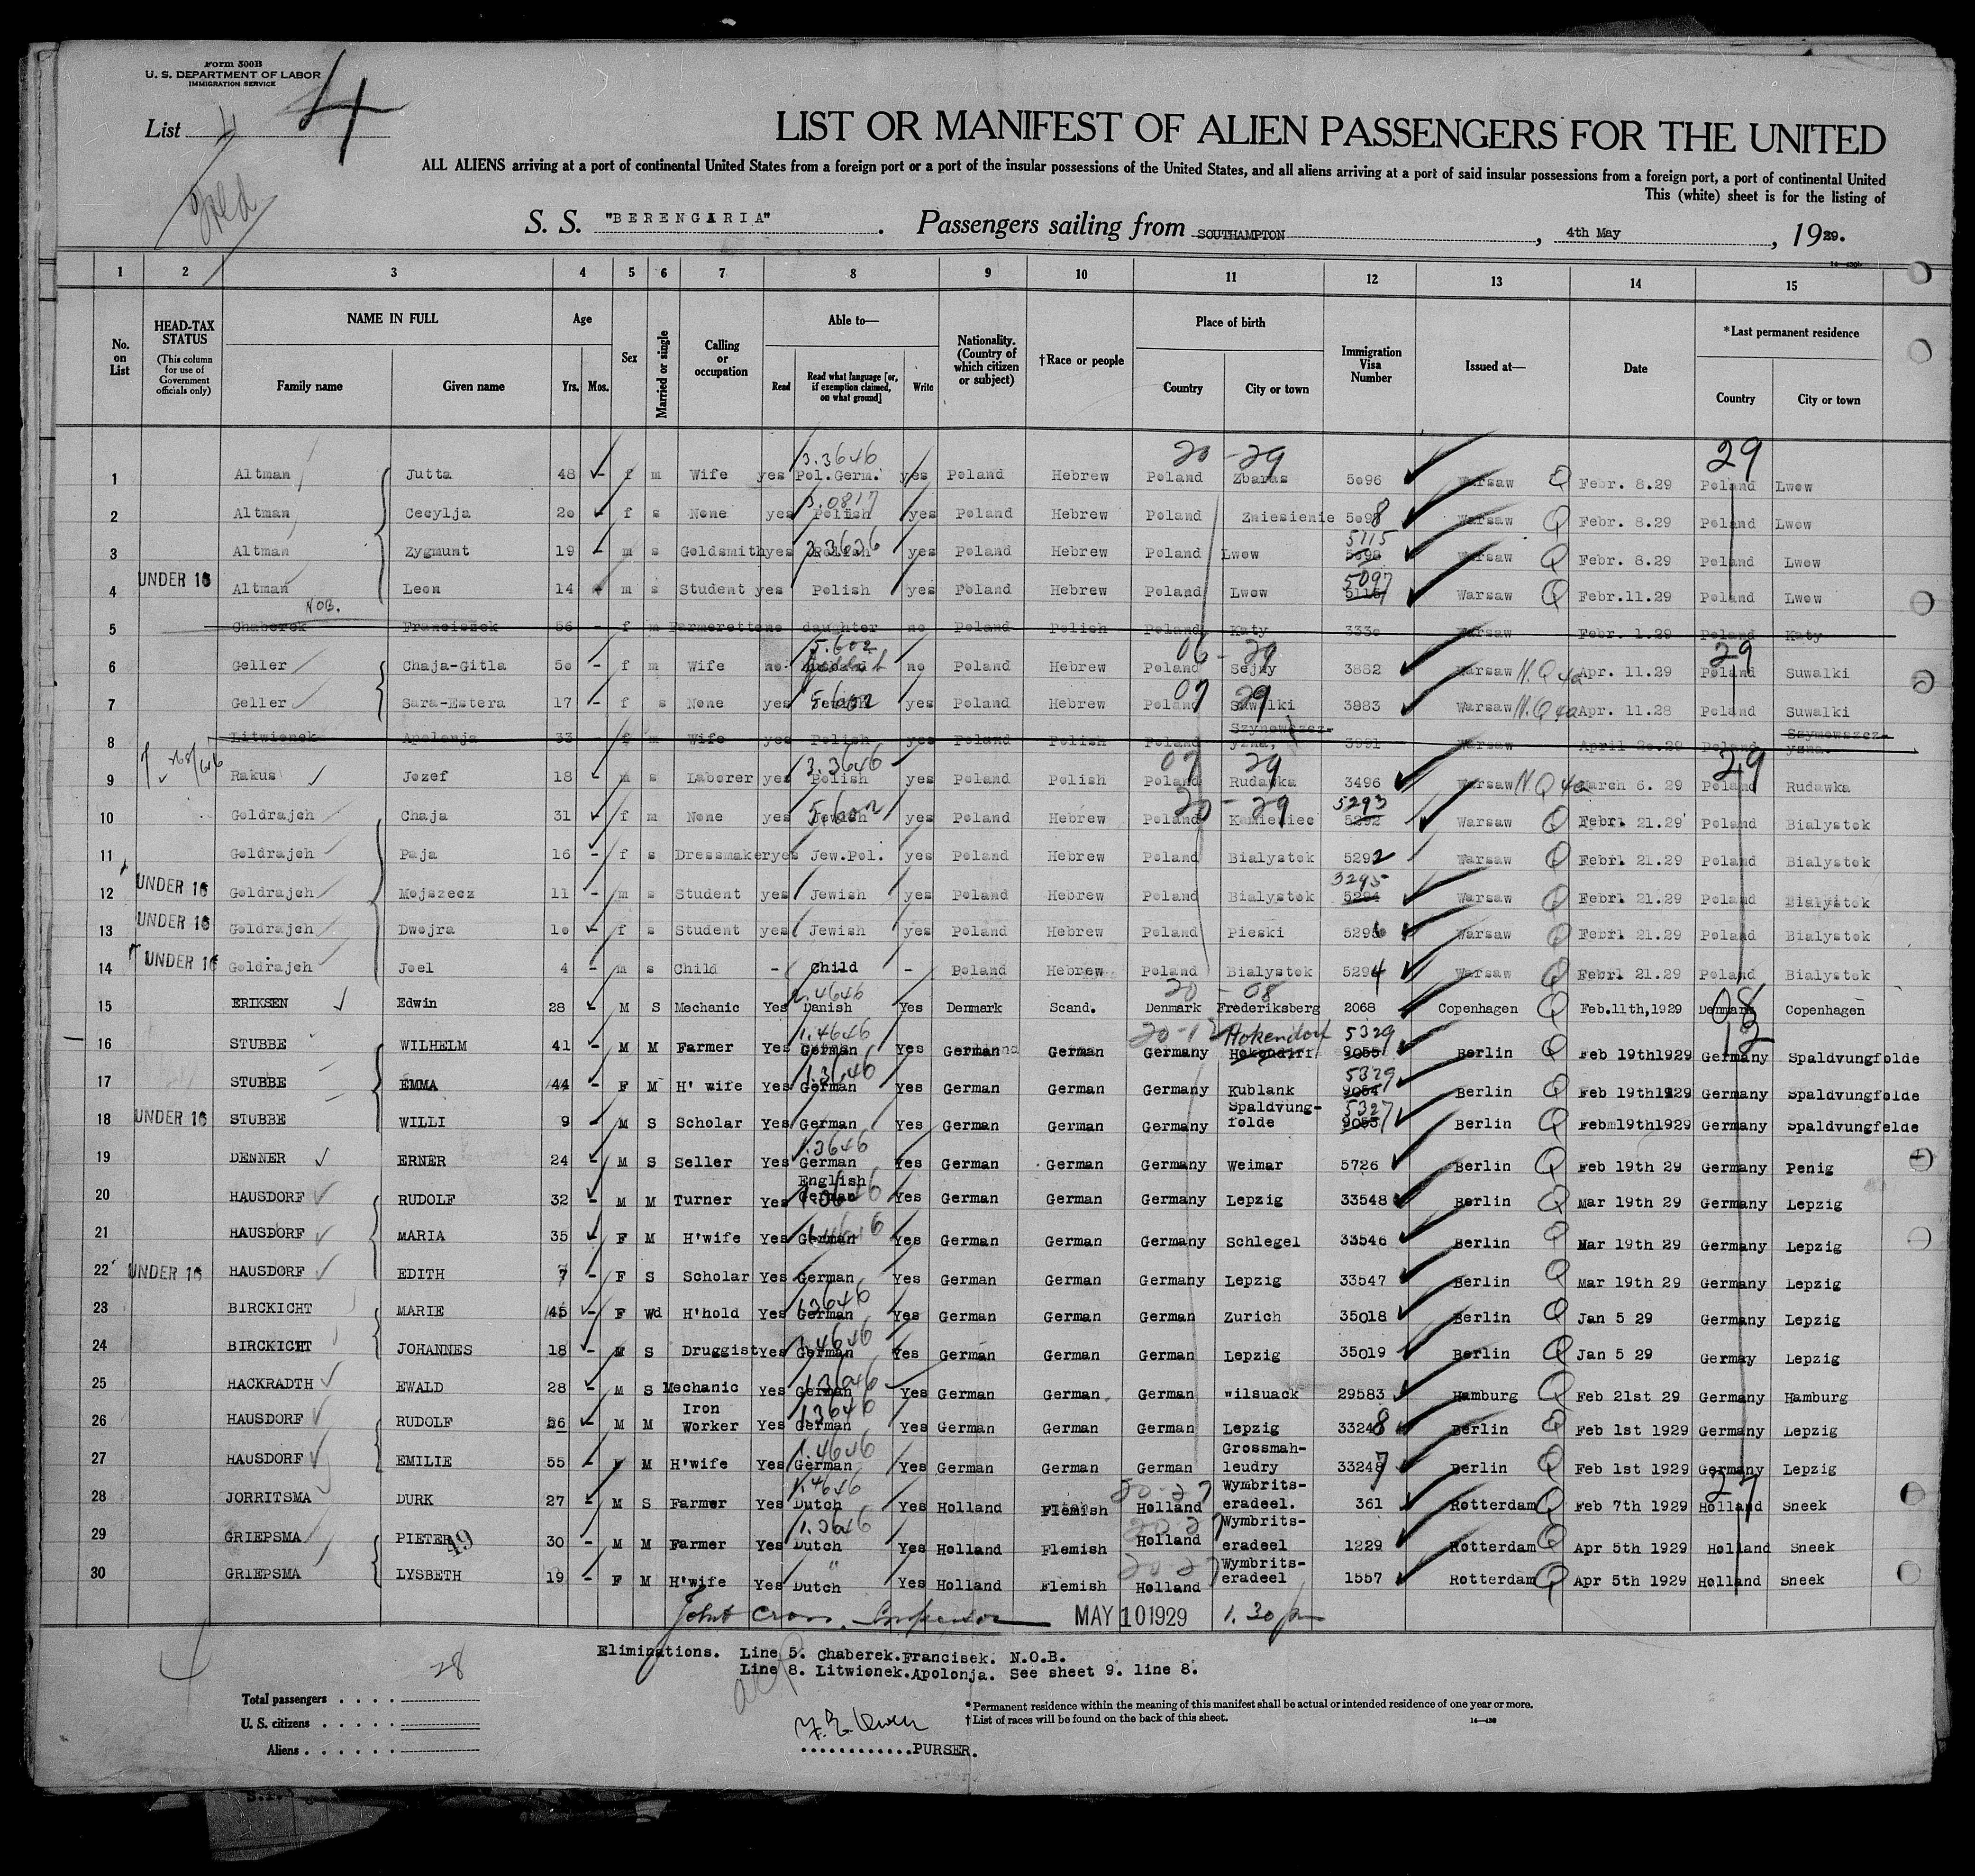 Form 500B
U. S. DEPARTMENT OF LABOR
IMMIGRATION SERVICE
List 4
4
LIST OR MANIFEST OF ALIEN PASSENGERS FOR THE UNITED
ALL ALIENS arriving at a port of continental United States from a foreign port or a port of the insular possessions of the United States, and all aliens arriving at a port of said insular possessions from a foreign port, a port of continental United
This (white) sheet is for the listing of
S. S. "BERENGARIA". Passengers sailing from SOUTHAMPTON, 4th May, 1929.
1 2 3 4 5 6 7 8 9 10 11 12 13 14 15
No. on List
HEAD-TAX STATUS
(This column for use of Government officials only)
NAME IN FULL
Family name
Given name
Age
Yrs. Mos.
Sex
Married or single
Calling or occupation
Able to—
Read
Read what language [or, if exemption claimed, on what ground]
Write
Nationality. (Country of which citizen or subject)
†Race or people
Place of birth
Country
City or town
Immigration Visa Number
Issued at—
Date
*Last permanent residence
Country
City or town
20 - 29 29
1 Altman Jutta 48 - f m Wife yes 3.3646 Pol.Germ. yes Poland Hebrew Poland Zbaras 5096 Warsaw Q Febr. 8.29 Poland Lwow
2 Altman Cecylja 20 - f s None yes 3.0817 Polish yes Poland Hebrew Poland Zniesienie 5098 Warsaw Q Febr. 8.29 Poland Lwow
3 Altman Zygmunt 19 - m s Goldsmith yes Polish yes Poland Hebrew Poland Lwow 5115 Warsaw Q Febr. 8.29 Poland Lwow
4 UNDER 16 Altman Leon 14 m s Student yes Polish yes Poland Hebrew Poland Lwow 5097 Warsaw Q Febr.11.29 Poland Lwow
NOB.
5 Chaberek Franciszek 56 - f m Farmerette no daughter no Poland Polish Poland Katy 3330 Warsaw Febr. 1.29 Poland Katy
06 - 29 29
6 Geller Chaja-Gitla 50 - f m Wife no 5.602 no Poland Hebrew Poland Sejny 3882 Warsaw N.Q 4a Apr. 11.29 Poland Suwalki
07 29
7 Geller Sara-Estera 17 - f s None yes 5.602 Jewish yes Poland Hebrew Poland Suwalki 3883 Warsaw N.Q 4a Apr. 11.28 Poland Suwalki
8 Litwionek Apolonja 33 - f m Wife yes Polish yes Poland Polish Poland Szymowszcz-yzna, 3991 Warsaw April 20.29 Poland Szymowszcz-yzna.
07 29 29
9 Rakus Jozef 18 - m s Laborer yes 3.3646 Polish yes Poland Polish Poland Rudawka 3496 Warsaw N.Q 4a March 6. 29 Poland Rudawka
20 - 29
10 Goldrajch Chaja 31 - f m None yes 5.602 Jewish yes Poland Hebrew Poland Kamieniec 5293 5292 Warsaw Q Febrl 21.29 Poland Bialystok
11 Goldrajch Paja 16 - f s Dressmaker yes Jew.Pol. yes Poland Hebrew Poland Bialystok 5292 Warsaw Q Febrl 21.29 Poland Bialystok
12 UNDER 16 Goldrajch Mojszecz 11 - m s Student yes Jewish yes Poland Hebrew Poland Bialystok 3295 5294 Warsaw Q Febrl 21.29 Poland Bialystok
13 UNDER 16 Goldrajch Dwojra 10 - f s Student yes Jewish yes Poland Hebrew Poland Pieski 5296 Warsaw Q Febrl 21.29 Poland Bialystok
14 UNDER 16 Goldrajch Joel 4 - m s Child - Child - Poland Hebrew Poland Bialystok 5294 Warsaw Q Febrl 21.29 Poland Bialystok
20 - 08 08
15 ERIKSEN Edwin 28 - M S Mechanic Yes 1.4646 Danish Yes Denmark Scand. Denmark Frederiksberg 2068 Copenhagen Q Feb.11th,1929 Denmark Copenhagen
20-12 Hokendorf 5329 12
16 STUBBE WILHELM 41 - M M Farmer Yes 1.4646 German Yes German German Germany Hokendirf 9055 Berlin Q Feb 19th1929 Germany Spaldvungfolde
17 STUBBE EMMA 44 - F M H' wife Yes 1.3646 German Yes German German Germany Kublank 5329 9054 Berlin Q Feb 19th1929 Germany Spaldvungfolde
18 UNDER 16 STUBBE WILLI 9 - M S Scholar Yes German Yes German German Germany Spaldvung-folde 5327 9053 Berlin Q Febm19th1929 Germany Spaldvungfelde
19 DENNER ERNER 24 - M S Seller Yes 1.3646 German Yes German German Germany Weimar 5726 Berlin Q Feb 19th 29 Germany Penig
20 HAUSDORF RUDOLF 32 - M M Turner Yes English German Yes German German Germany Lepzig 33548 Berlin Q Mar 19th 29 Germany Lepzig
21 HAUSDORF MARIA 35 - F M H'wife Yes 1.4646 German Yes German German Germany Schlegel 33546 Berlin Q Mar 19th 29 Germany Lepzig
22 UNDER 16 HAUSDORF EDITH 7 - F S Scholar Yes German Yes German German Germany Lepzig 33547 Berlin Q Mar 19th 29 Germany Lepzig
23 BIRCKICHT MARIE 45 - F Wd H'hold Yes 1.3646 German Yes German German German Zurich 35018 Berlin Q Jan 5 29 Germany Lepzig
24 BIRCKICHT JOHANNES 18 - M S Druggist Yes 1.4646 German Yes German German German Lepzig 35019 Berlin Q Jan 5 29 Germay Lepzig
25 HACKRADTH EWALD 28 - M S Mechanic Yes 1.3646 German Yes German German German wilsuack 29583 Hamburg Q Feb 21st 29 Germany Hamburg
26 HAUSDORF RUDOLF 56 - M M Iron Worker Yes 1.3646 German Yes German German German Lepzig 33248 Berlin Q Feb 1st 1929 Germany Lepzig
27 HAUSDORF EMILIE 55 - F M H'wife Yes 1.4646 German Yes German German German Grossmah-leudry 33247 Berlin Q Feb 1st 1929 Germany Lepzig
28 JORRITSMA DURK 27 - M S Farmer Yes 1.4646 Dutch Yes Holland Flemish 20-27 Holland Wymbrits-eradeel. 361 Rotterdam Q Feb 7th 1929 27 Holland Sneek
29 GRIEPSMA PIETER 49 30 - M M Farmer Yes 1.3646 Dutch Yes Holland Flemish 20-27 Holland Wymbrits-eradeel 1229 Rotterdam Q Apr 5th 1929 Holland Sneek
30 GRIEPSMA LYSBETH 19 - F M H'wife Yes " Dutch Yes Holland Flemish 20-27 Holland Wymbrits-eradeel 1557 Rotterdam Q Apr 5th 1929 Holland Sneek
John Cross, Inspector MAY 10 1929 1.30 pm
Eliminations. Line 5. Chaberek.Francisek. N.O.B.
Line 8. Litwionek.Apolonja. See sheet 9. line 8.
28
Total passengers . . . .
U. S. citizens . . . . .
Aliens . . . . . .
*Permanent residence within the meaning of this manifest shall be actual or intended residence of one year or more.
†List of races will be found on the back of this sheet.
............PURSER.